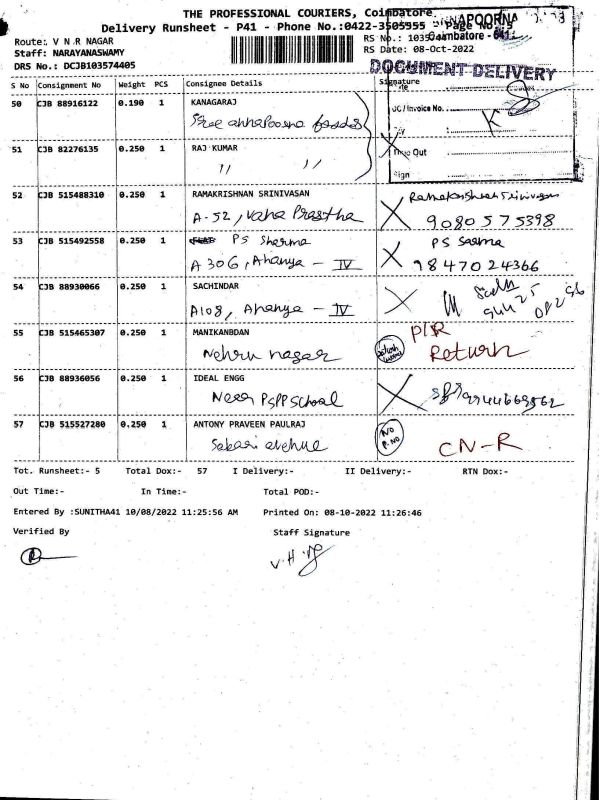 THE PROFESSIONAL COURIERS, Coimbatore
Delivery Runsheet - P41 - Phone No.:0422-3505555 Page No.
Route: V N R NAGAR
Staff: NARAYANASWAMY
DRS No.: DCJB103574405
RS No.:
RS Date: 08-Oct-2022
Coimbatore - 641
DOCUMENT DELIVERY
S No Consignment No Weight PCS Consignee Details Signature
50 CJB 88916122 0.190 1 KANAGARAJ
Shree annapoorna foods
DC / Invoice No.
51 CJB 82276135 0.250 1 RAJ KUMAR
" "
Time Out
Sign
52 CJB 515488310 0.250 1 RAMAKRISHNAN SRINIVASAN Ramakrishnan Srinivasan
A-52, Vana Prastha X 9080575398
53 CJB 515492558 0.250 1 PS Sharma PS Sarma
A 306, Ananya - IV X 9847024366
54 CJB 88930066 0.250 1 SACHINDAR
A108, Ananya - IV X
55 CJB 515465307 0.250 1 MANIKANBDAN P/R
Nehru nagar Return
56 CJB 88936056 0.250 1 IDEAL ENGG
Near PSPP School X
57 CJB 515527280 0.250 1 ANTONY PRAVEEN PAULRAJ NO P.NO
Sabari avenue CN-R
Tot. Runsheet:- 5 Total Dox:- 57 I Delivery:- II Delivery:- RTN Dox:-
Out Time:- In Time:- Total POD:-
Entered By :SUNITHA41 10/08/2022 11:25:56 AM Printed On: 08-10-2022 11:26:46
Verified By Staff Signature